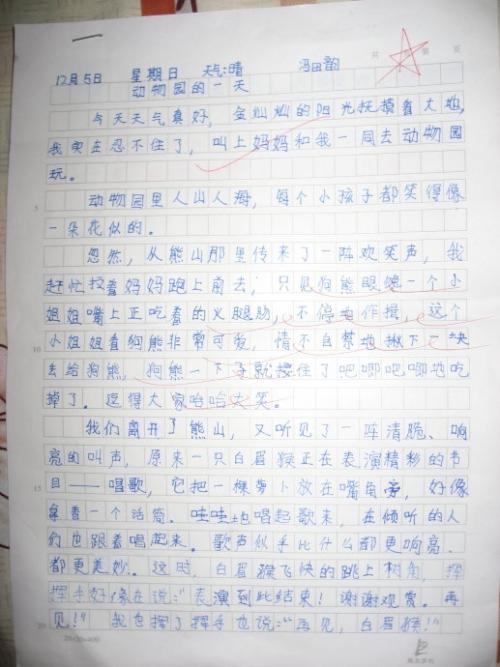 共 页 第 页
12月5日 星期日 天气:晴 冯田韵
动物园的一天
今天天气真好,金灿灿的阳光抚摸着大地,
我实在忍不住了,叫上妈妈和我一同去动物园
玩。
动物园里人山人海,每个小孩子都笑得像
5
一朵花似的。
忽然,从熊山那里传来了一阵欢笑声,我
赶忙拉着妈妈跑上前去,只见狗熊眼馋一个小
姐姐嘴上正吃着的火腿肠,不停地作揖,这个
10
小姐姐看狗熊非常可爱,情不自禁地揪下一块
丢给狗熊,狗熊一下子就接住了吧唧吧唧地吃
掉了。逗得大家哈哈大笑。
我们离开了熊山,又听见了一阵清脆、响
亮的叫声,原来一只白眉猴正在表演精彩的节
15
目——唱歌,它把一棵萝卜放在嘴角旁,好像
拿着一个话筒。哇哇地唱起歌来,在倾听的人
们也跟着唱起来。歌声似乎比什么都更响亮、
都更美妙。这时,白眉猴飞快的跳上树角,挥
挥手好像在说:“表演到此结束!谢谢观赏。再
20
见!”我也挥了挥手也说:“再见,白眉猴!”
20×20=400